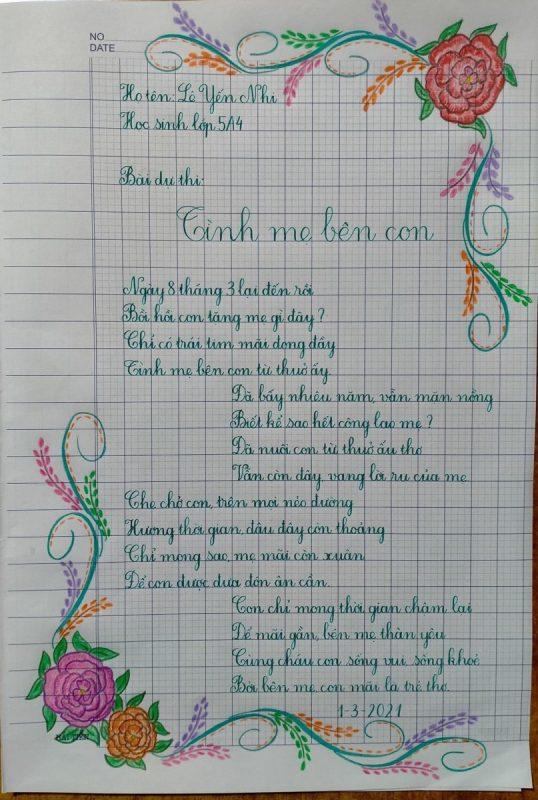 NO
DATE
Họ tên: Lê Yến Nhi
Học sinh lớp 5A4
Bài dự thi:
Tình mẹ bên con
Ngày 8 tháng 3 lại đến rồi
Bồi hồi con tặng mẹ gì đây?
Chỉ có trái tim mãi đong đầy
Tình mẹ bên con từ thuở ấy.
Đã bấy nhiêu năm, vẫn mặn nồng
Biết kể sao hết công lao mẹ?
Đã nuôi con từ thuở ấu thơ
Vẫn còn đây, vang lời ru của mẹ
Che chở con, trên mọi nẻo đường
Hương thời gian, đâu đây còn thoảng
Chỉ mong sao, mẹ mãi còn xuân
Để con được đưa đón ân cần.
Con chỉ mong thời gian chậm lại
Để mãi gần, bên mẹ thân yêu
Cùng cháu con, sống vui, sống khoẻ
Bởi bên mẹ, con mãi là trẻ thơ.
1-3-2021
HẢI TIẾN